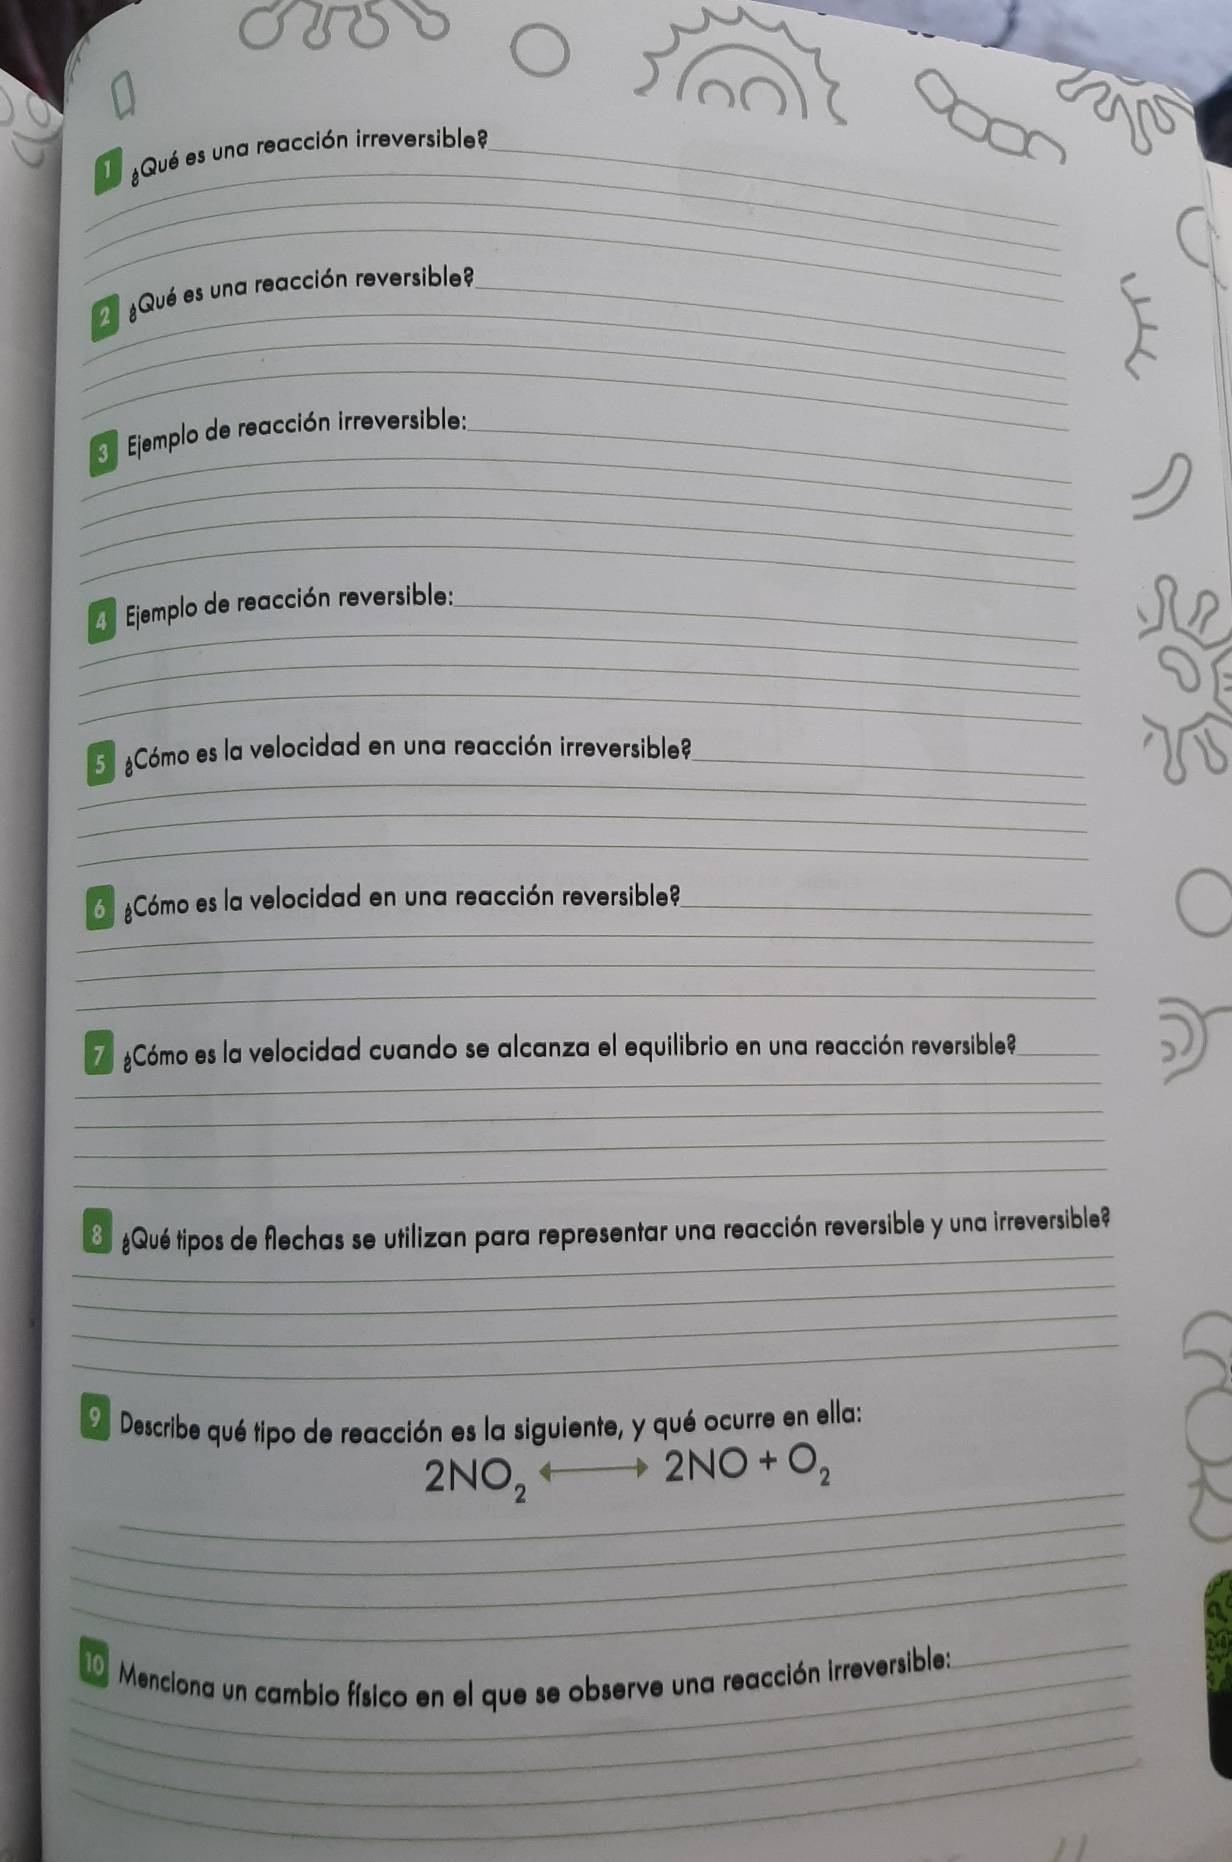 1 ¿Qué es una reacción irreversible?
2 ¿Qué es una reacción reversible?
3 Ejemplo de reacción irreversible:
4 Ejemplo de reacción reversible:
5 ¿Cómo es la velocidad en una reacción irreversible?
6 ¿Cómo es la velocidad en una reacción reversible?
7 ¿Cómo es la velocidad cuando se alcanza el equilibrio en una reacción reversible?
8 ¿Qué tipos de flechas se utilizan para representar una reacción reversible y una irreversible?
9 Describe qué tipo de reacción es la siguiente, y qué ocurre en ella:
2NO₂ ⟷ 2NO + O₂
10 Menciona un cambio físico en el que se observe una reacción irreversible: